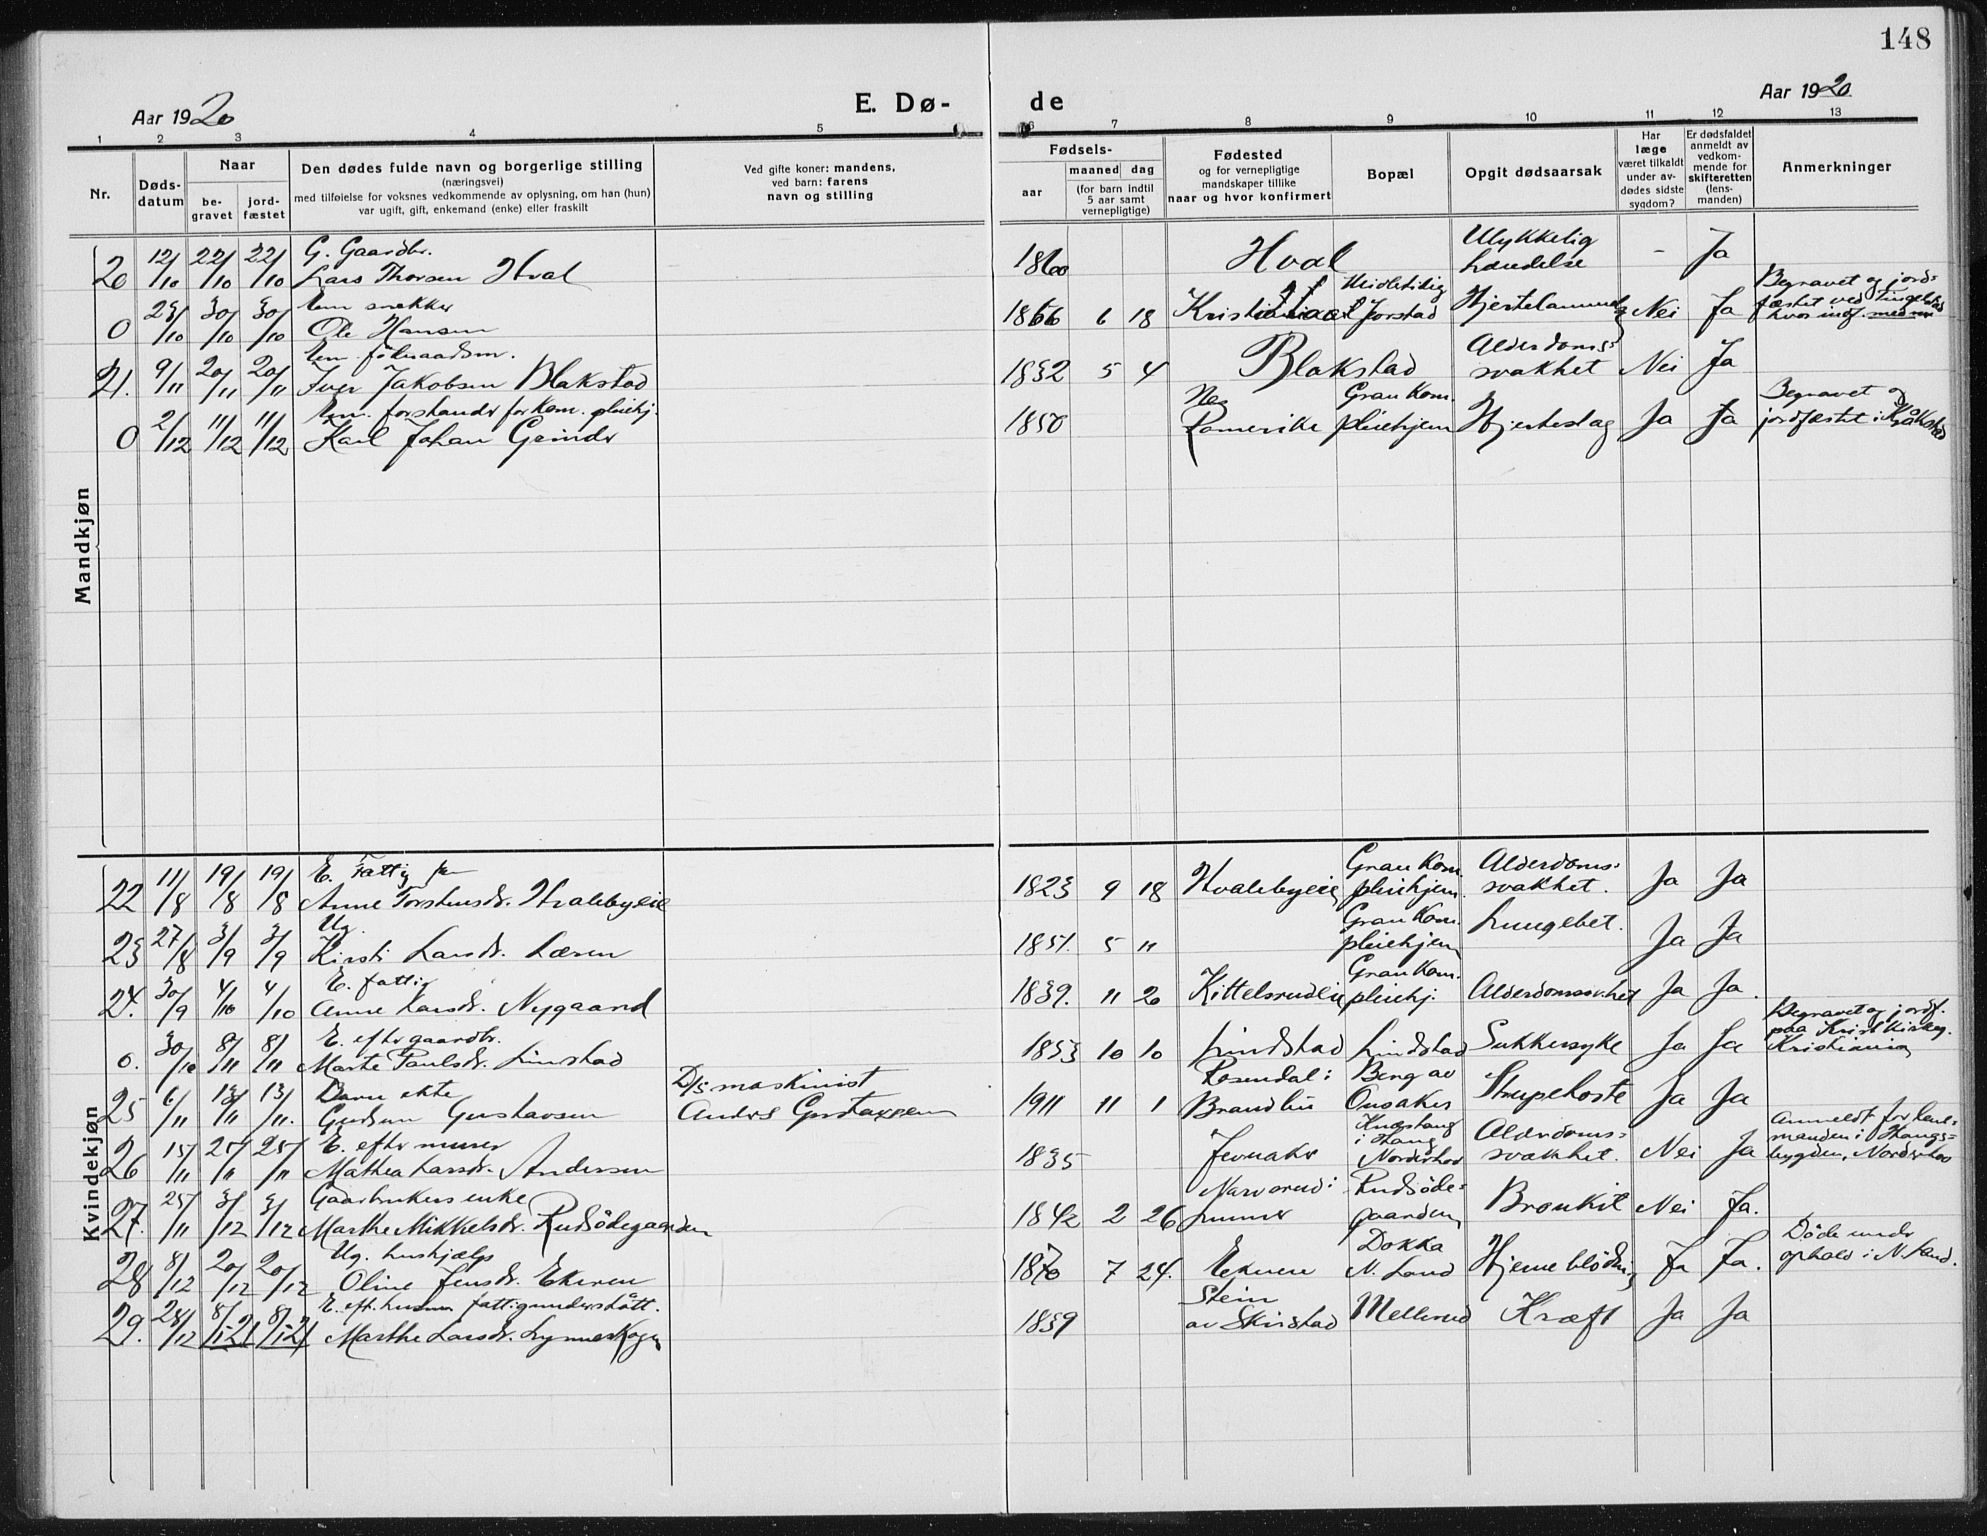 148
Aar 1920
E. Dø-
de
Aar 1920
1 2 3 4 5 6 7 8 9 10 11 12 13
Nr.
Døds-
datum
Naar
be-
gravet
jord-
fæstet
Den dødes fulde navn og borgerlige stilling
(næringsvei)
med tilføielse for voksnes vedkommende av oplysning, om han (hun)
var ugift, gift, enkemand (enke) eller fraskilt
Ved gifte koner: mandens,
ved barn: farens
navn og stilling
Fødsels-
aar
maaned dag
(for barn indtil
5 aar samt
vernepligtige)
Fødested
og for vernepligtige
mandskaper tillike
naar og hvor konfirmert
Bopæl
Opgit dødsaarsak
Har
læge
været tilkaldt
under av-
dødes sidste
sygdom?
Er dødsfaldet
anmeldt av
vedkom-
mende for
skifteretten
(lens-
manden)
Anmerkninger
Mandkjøn
G. Gaardbr.
20 12/10 22/10 22/10 Lars Thorsen Hval 1860 Hval Ulykkelig
hændelse - Ja
Em snekker
0 23/10 30/10 30/10 Ole Hansen 1866 6 18 Jorstad Nei Ja
Begravet og jord-
fæstet ved Tingelstad
hvor indf. med nr
Em.
21. 9/11 20/11 20/11 Iver Jakobsen Blakstad 1832 5 4 Blakstad Alderdoms-
svakhet Nei Ja
Em. forstander for kom. pleiehj.
0 2/12 11/12 11/12 Karl Johan Grinder 1850 Nes
Romerike Gran kom.
pleiehjem Hjerteslag Ja Ja
Begravet og
jordfæstet i Kråkstad
Kvindekjøn
E. Fattig
22 11/8 19/8 19/8 Anne Torstensdr. Hvalebyeie 1823 9 18 Hvalebyeie Gran Kom.
pleiehjem. Alderdoms-
svakhet. Ja Ja
Ug.
23 27/8 3/9 3/9 Kirsti Larsdr. Læren 1851. 5 11 Gran Kom.
pleiehjem Lungebet. Ja Ja
E. fattig
24. 30/9 4/10 4/10 Anne Larsdr. Nygaard 1839. 11 20 Kittelsrudeie Gran Kom.
pleiehj. Alderdomssv.het Ja Ja.
E. efter gaardbr.
0. 30/10 8/11 8/11 Marte Paulsdr. Linstad 1853 10 10 Lindstad Lindstad Sukkersyke Ja Ja
Begravet og jordf.
paa Krist Kirkeg.
Kristiania
Barn ekte
25 6/11 13/11 13/11. Gudrun Gustavsen
D/S maskinist
Anders Gustavsen 1911 11 1 Rosendal i
Brandbu Berg av
Onsaker Strupehoste Ja Ja
E. efter murer
26 15/11 25/11 25/11 Mathea Larsdr. Andersen 1835 Jevnaker
i Haug
Norderhov Alderdoms-
svakhet. Nei Ja
Anmeldt for lens-
manden i Haugs-
bygden, Norderhov
Gaarbrukers enke
27. 25/11 3/12 3/12 Marthe Mikkelsdr. Rudsødegaarden 1842 2 26 Narverud i
Lunner Rudsøde-
gaarden Bronkit Nei Ja.
Ug. hushjælp
28 8/12 20/12 20/12 Oline Jensdr. Ekeren 1870 7 24. Ekeren Dokka
N. Land Hjerneblødning Ja Ja.
Døde under
ophold i N. Land.
E. eft. husmn fattigunderstøtt.
29. 28/12 8/1-21 8/1-21 Marthe Larsdr. 1859 Stein
av Skirstad Mellerud Kræft Ja Ja